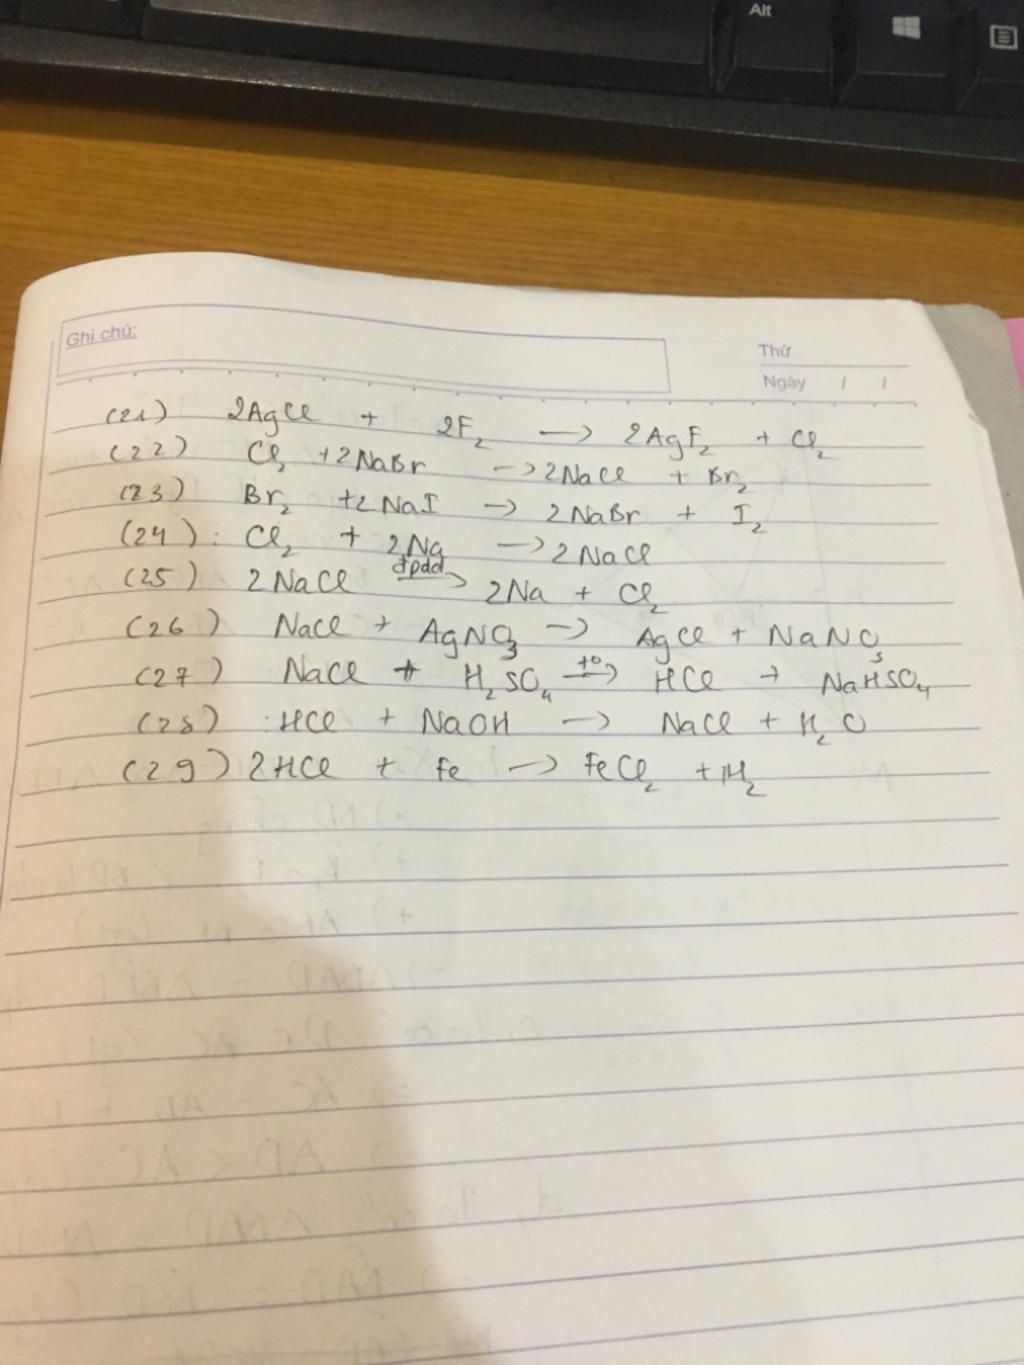 Alt
Ghi chú:
Thứ
Ngày / /
(21) 2AgCl + 2F₂ → 2AgF₂ + Cl₂
(22) Cl₂ + 2NaBr → 2NaCl + Br₂
(23) Br₂ + 2NaI → 2NaBr + I₂
(24): Cl₂ + 2Na → 2NaCl
(25) 2NaCl đpdd→ 2Na + Cl₂
(26) NaCl + AgNO₃ → AgCl + NaNO₃
(27) NaCl + H₂SO₄ t°→ HCl + NaHSO₄
(28) :HCl + NaOH → NaCl + H₂O
(29) 2HCl + Fe → FeCl₂ + H₂